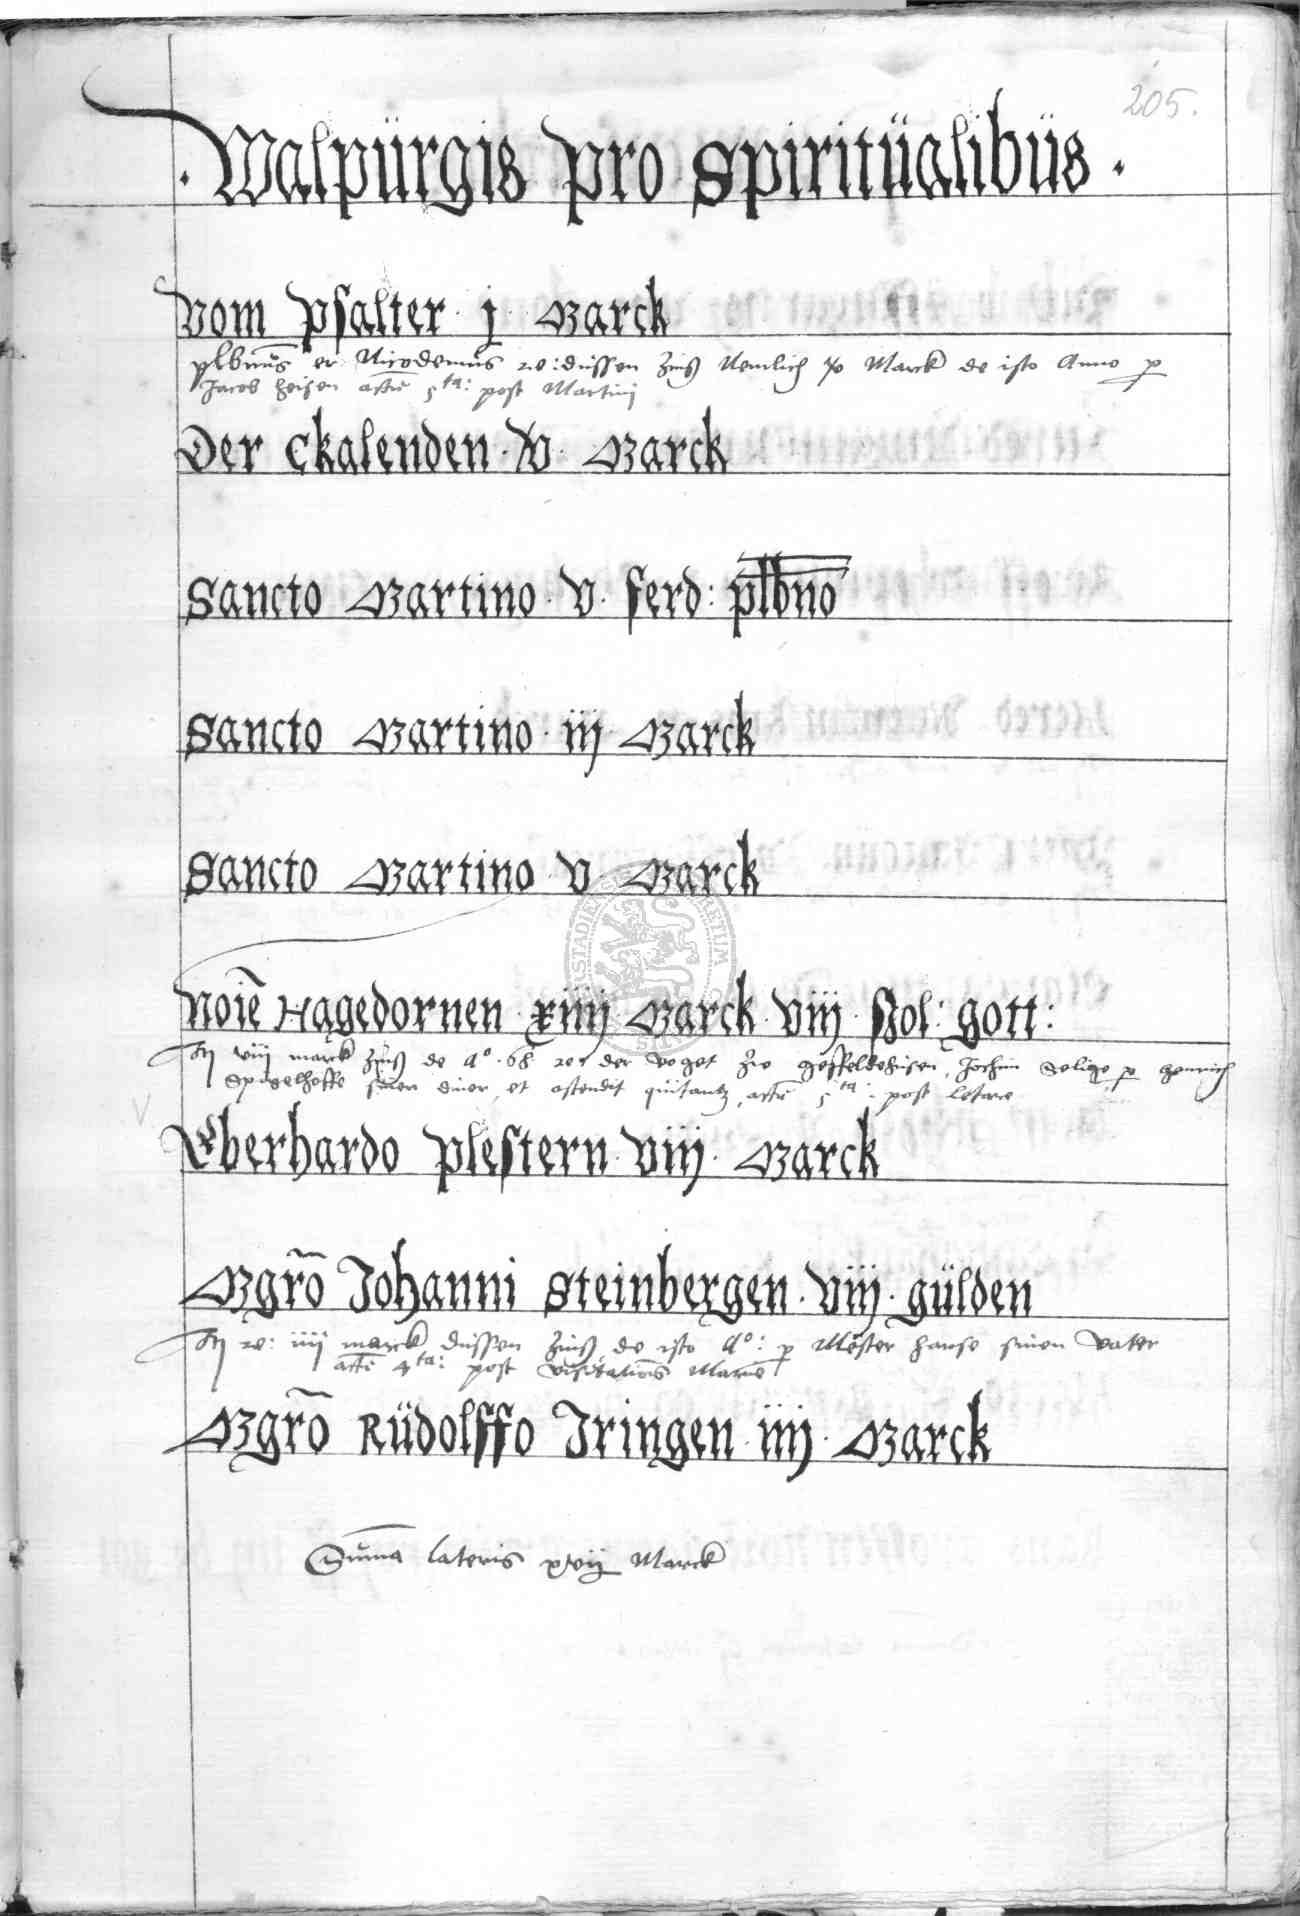 205.
. Walpürgis pro Spiritüalibüs .
Vom psalter j Marck
plbnus er Nicodemus re: dussen Zinß Nemlich Marck de isto Anno p
Jacob heisen actū 5ta: post Martinj
Der Ckalenden Marck
Sancto Martino v. ferd: plbno
Sancto Martino iij Marck
Sancto Martino v Marck
Noīe Hagedornen xiiij Marck viij Sol: gott:
viij marck Zinß de Aº 68 der voget Jochim p Henrich
Spigelhoffe et ostendit quitantz, actū 5ta: post letare
Eberhardo plestern viij Marck
Mgrō Johanni Steinbergen viij gülden
re: iiij marck dussen Zinß de isto Aº: p Mester Hanse sinen Vater
actū 4ta: post Visitationis Marie
Mgrō Rüdolffo Iringen iiij Marck
Suma lateris Marck